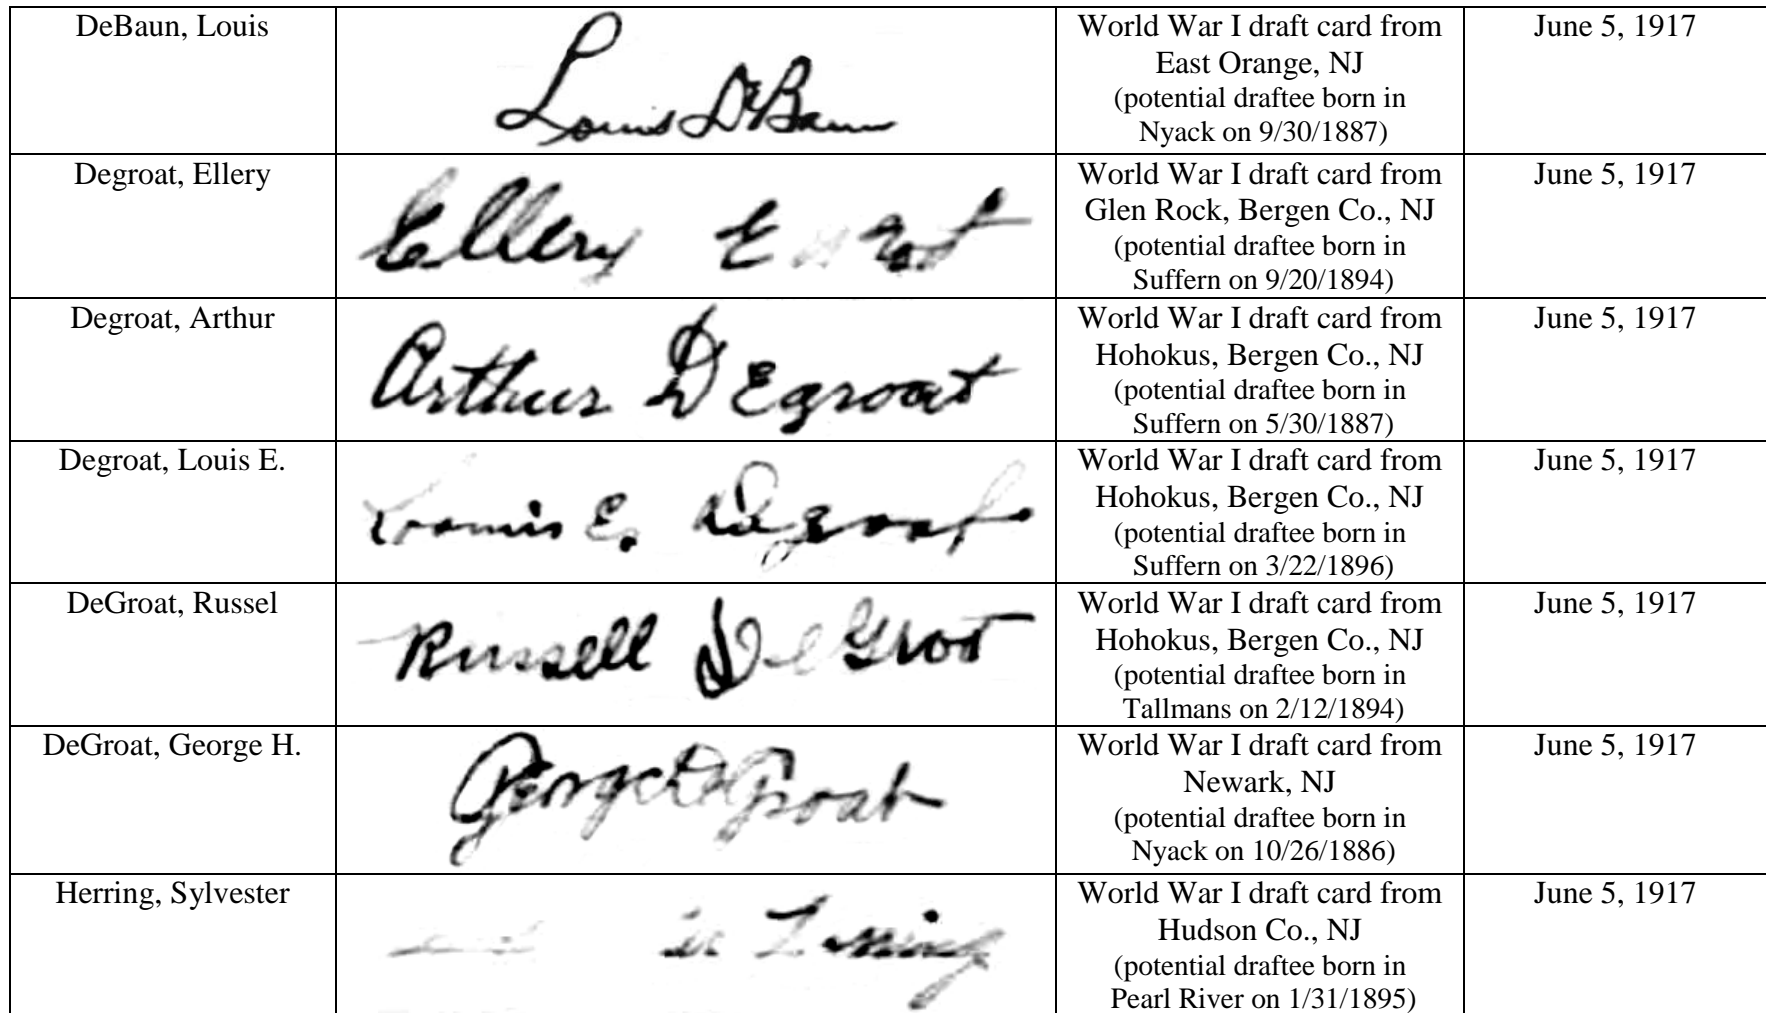 DeBaun, Louis
Louis DeBaun
World War I draft card from
East Orange, NJ
(potential draftee born in
Nyack on 9/30/1887)
June 5, 1917
Degroat, Ellery
Ellery E
World War I draft card from
Glen Rock, Bergen Co., NJ
(potential draftee born in
Suffern on 9/20/1894)
June 5, 1917
Degroat, Arthur
Arthur DEgroat
World War I draft card from
Hohokus, Bergen Co., NJ
(potential draftee born in
Suffern on 5/30/1887)
June 5, 1917
Degroat, Louis E.
Louis E. Degroat
World War I draft card from
Hohokus, Bergen Co., NJ
(potential draftee born in
Suffern on 3/22/1896)
June 5, 1917
DeGroat, Russel
Russell DeGrot
World War I draft card from
Hohokus, Bergen Co., NJ
(potential draftee born in
Tallmans on 2/12/1894)
June 5, 1917
DeGroat, George H.
George DeGroat
World War I draft card from
Newark, NJ
(potential draftee born in
Nyack on 10/26/1886)
June 5, 1917
Herring, Sylvester
World War I draft card from
Hudson Co., NJ
(potential draftee born in
Pearl River on 1/31/1895)
June 5, 1917